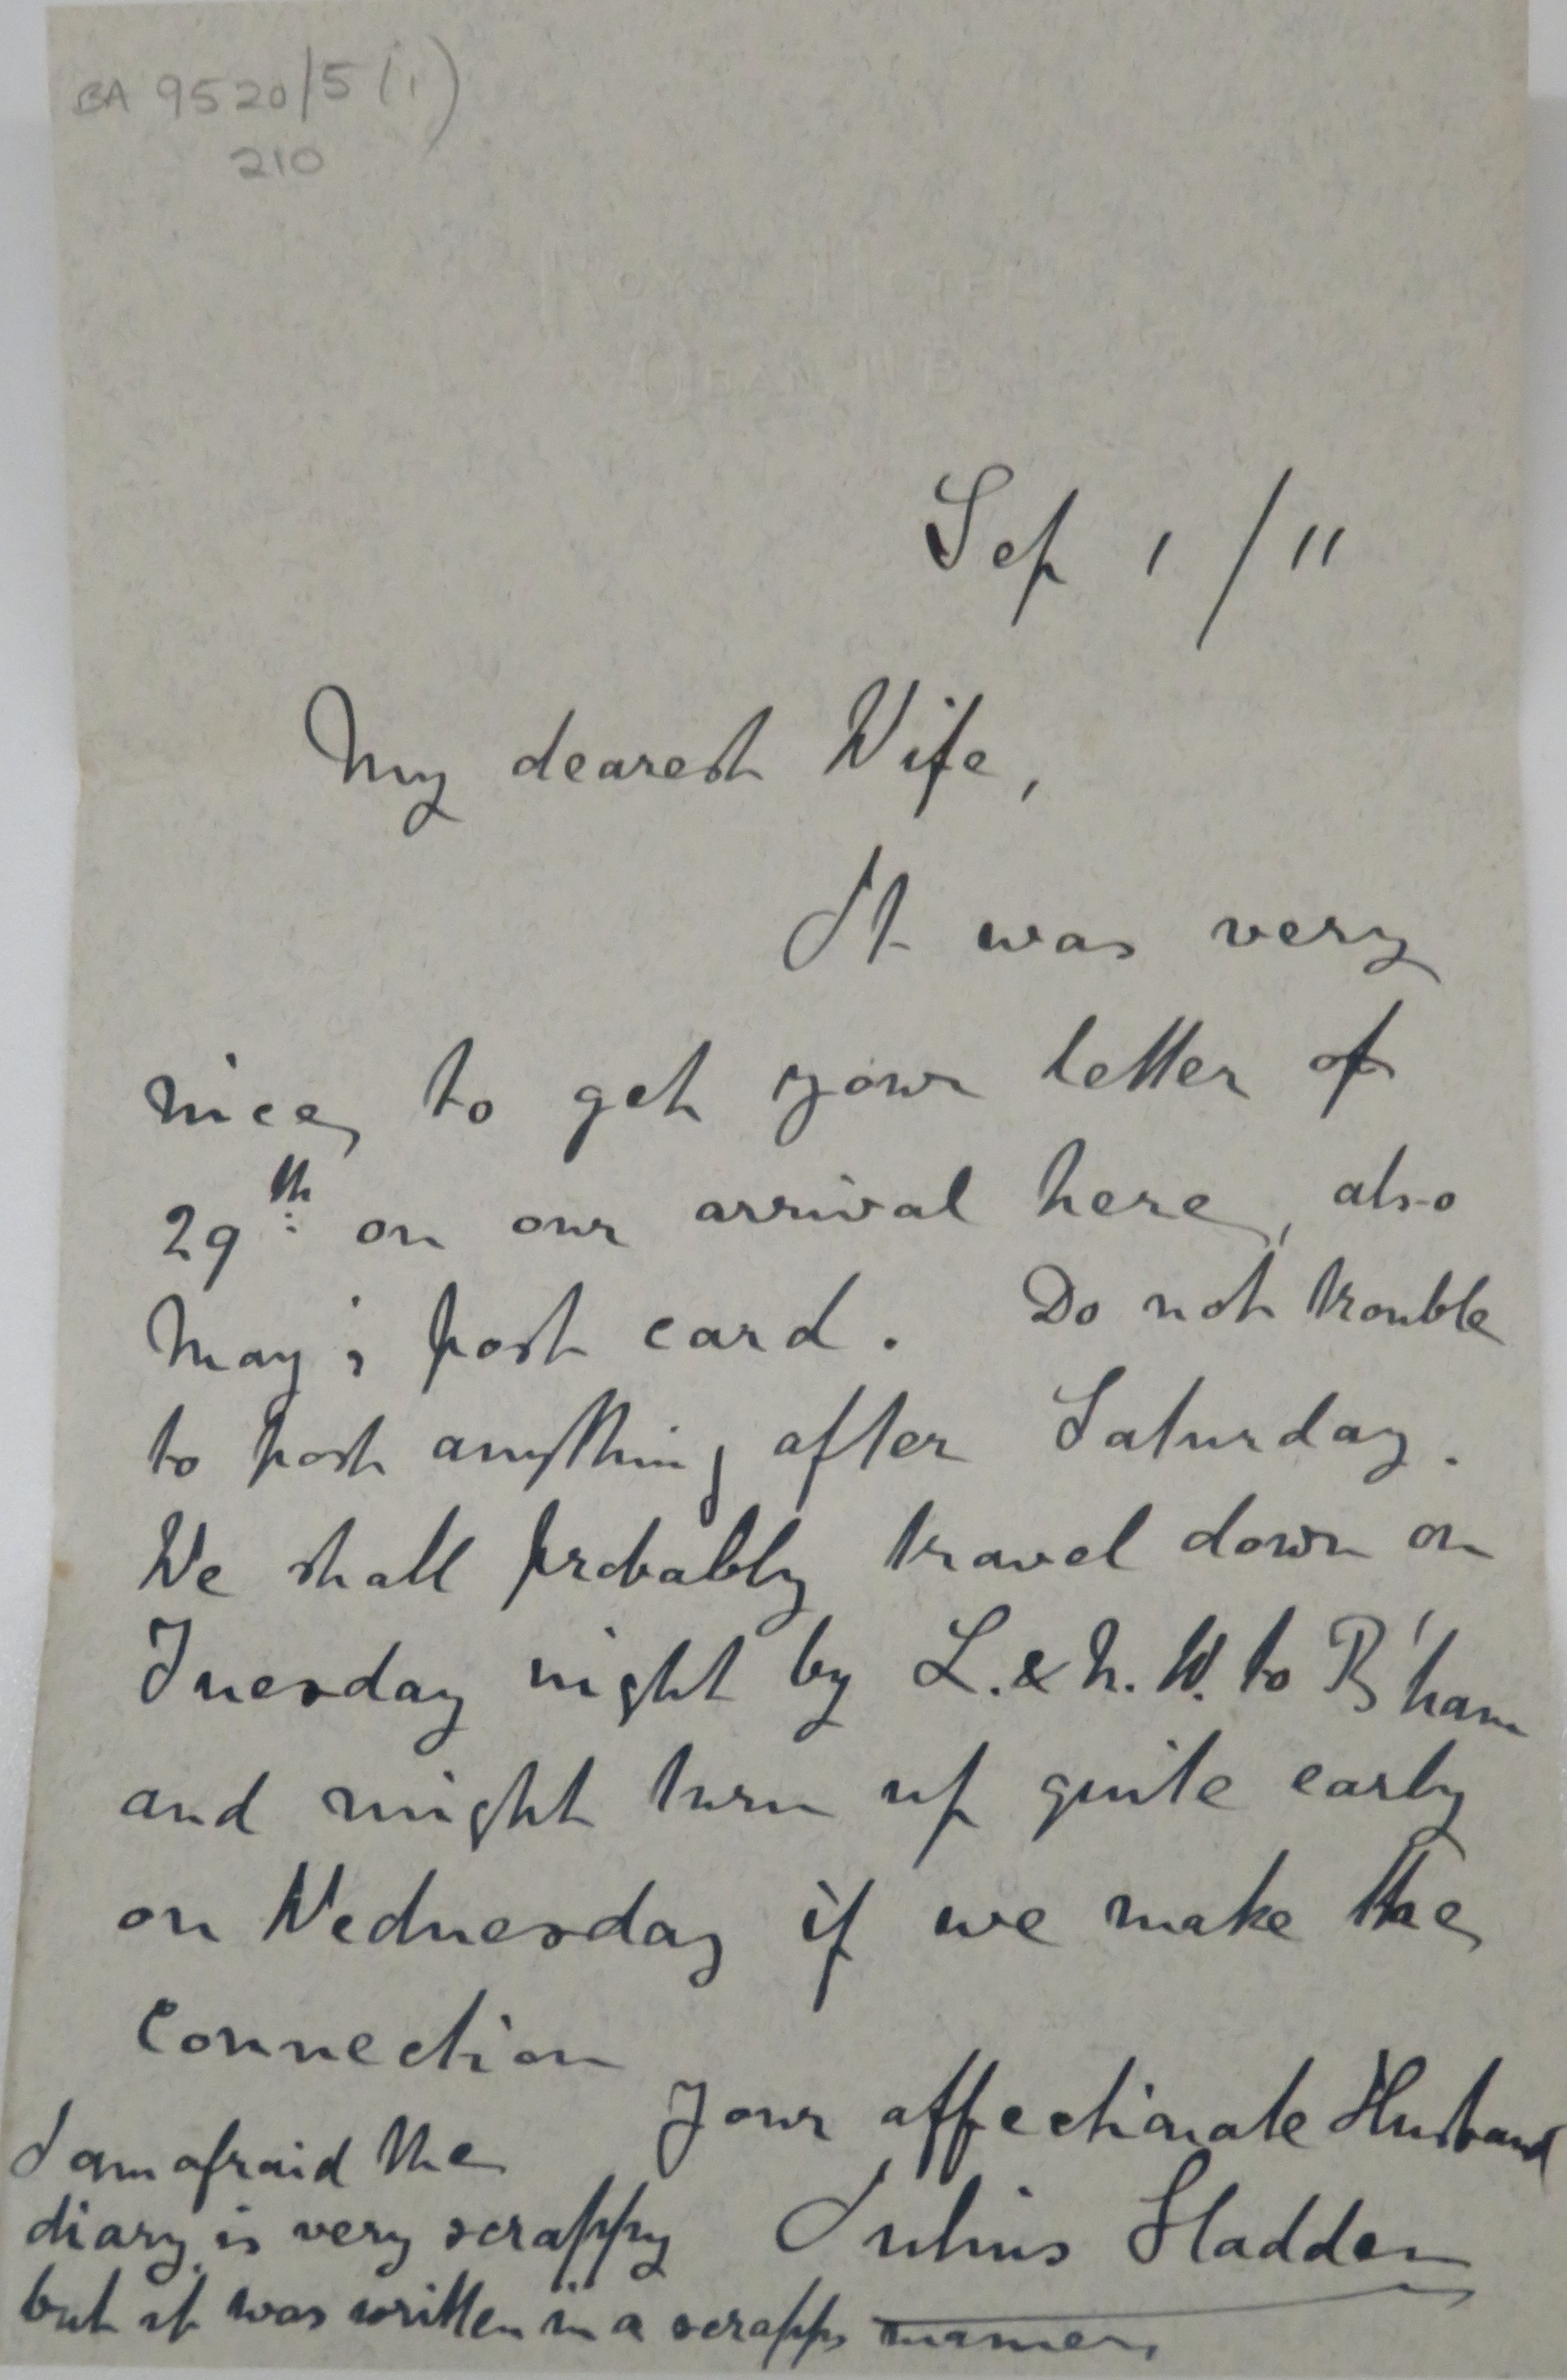 BA 9520/5(1)
210
ROYAL HOTEL
Sep 1 / 11
My dearest Wife,
It was very
nice to get your letter of
29th on our arrival here, also
May's post card. Do not trouble
to post anything after Saturday.
We shall probably travel down on
Tuesday night by L. & N. W. to B'ham
and might turn up quite early
on Wednesday if we make the
connection
your affectionate Husband
Julius Sladden
I am afraid the
diary is very scrappy
but it was written in a scrappy manner.